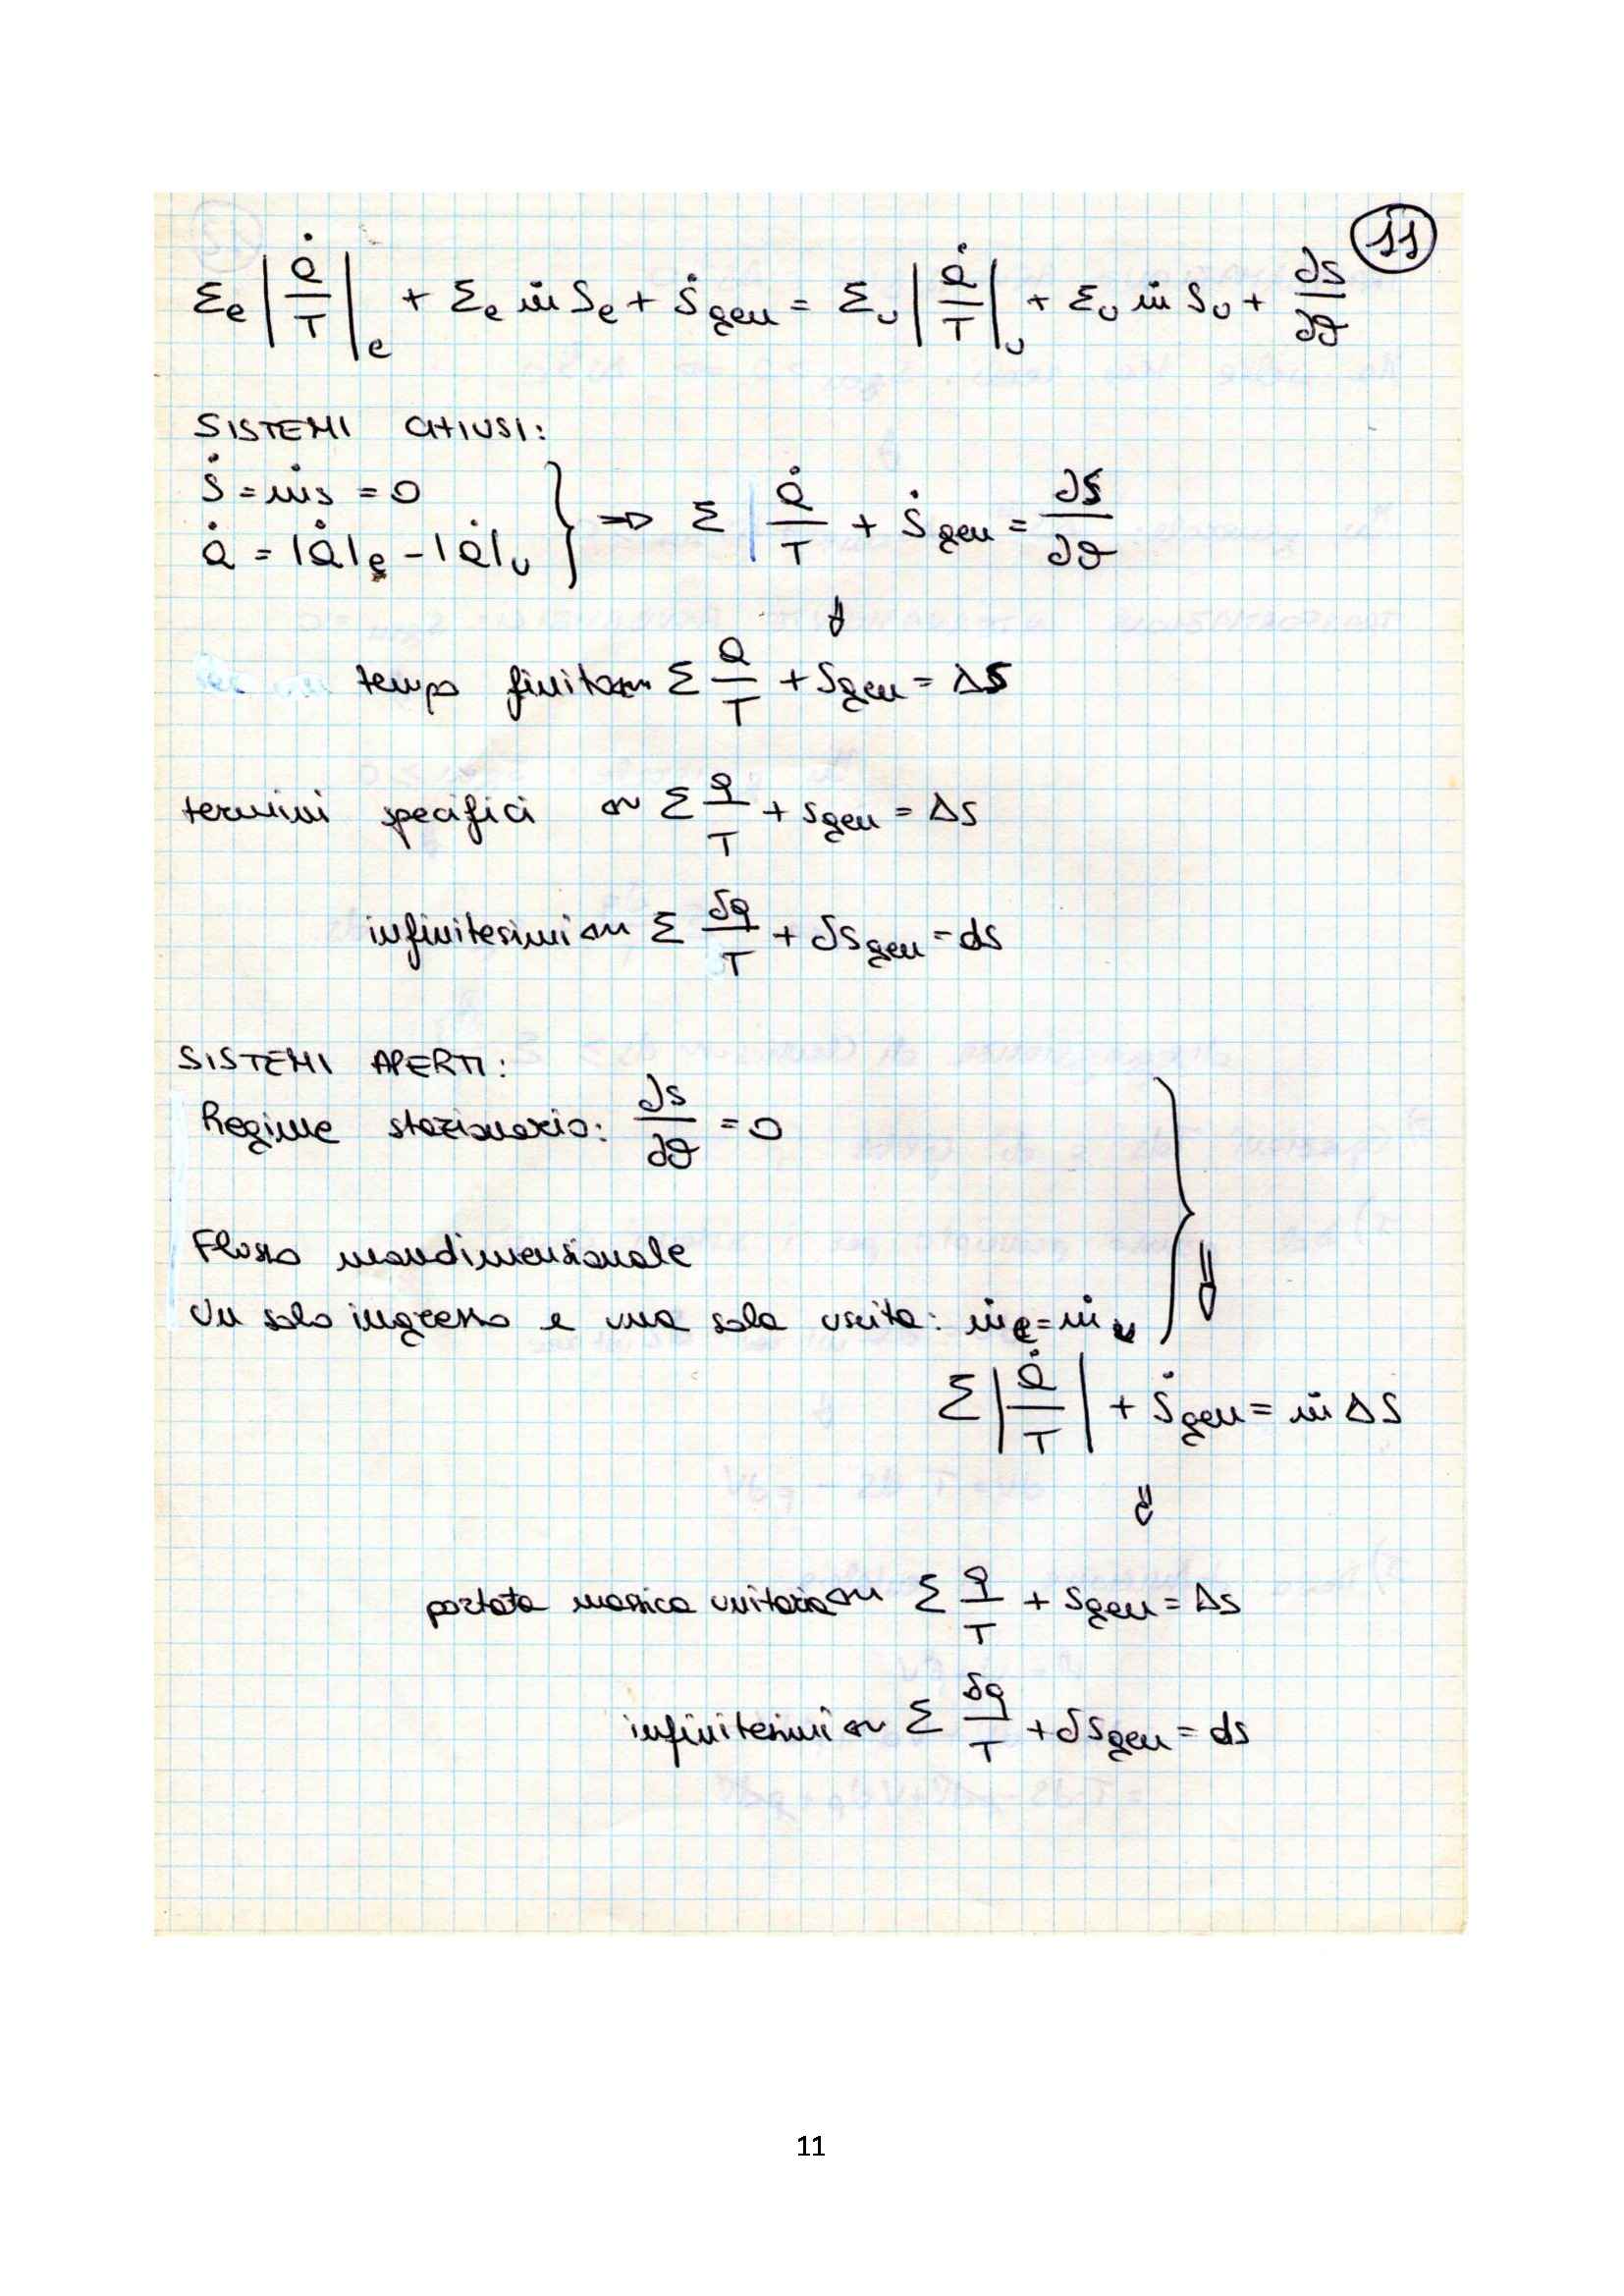 11
Σe |Q̇/T|e + Σe ṁ Se + Ṡgen = Σu |Q̇/T|u + Σu ṁ Su + ∂S/∂ϑ
SISTEMI CHIUSI:
Ṡ = ṁs = 0
Q̇ = |Q̇|e - |Q̇|u
=> Σ Q̇/T + Ṡgen = ∂S/∂ϑ
⇓
tempo finito ~ Σ Q/T + Sgen = ΔS
termini specifici ~ Σ q/T + sgen = ΔS
infinitesimi ~ Σ δq/T + δsgen = ds
SISTEMI APERTI:
Regime stazionario: ∂s/∂ϑ = 0
Flusso monodimensionale
Un solo ingresso e una sola uscita: ṁe = ṁu
⇓
Σ |Q̇/T| + Ṡgen = ṁ ΔS
⇓
portata massica unitaria ~ Σ q/T + sgen = Δs
infinitesimi ~ Σ δq/T + δsgen = ds
11